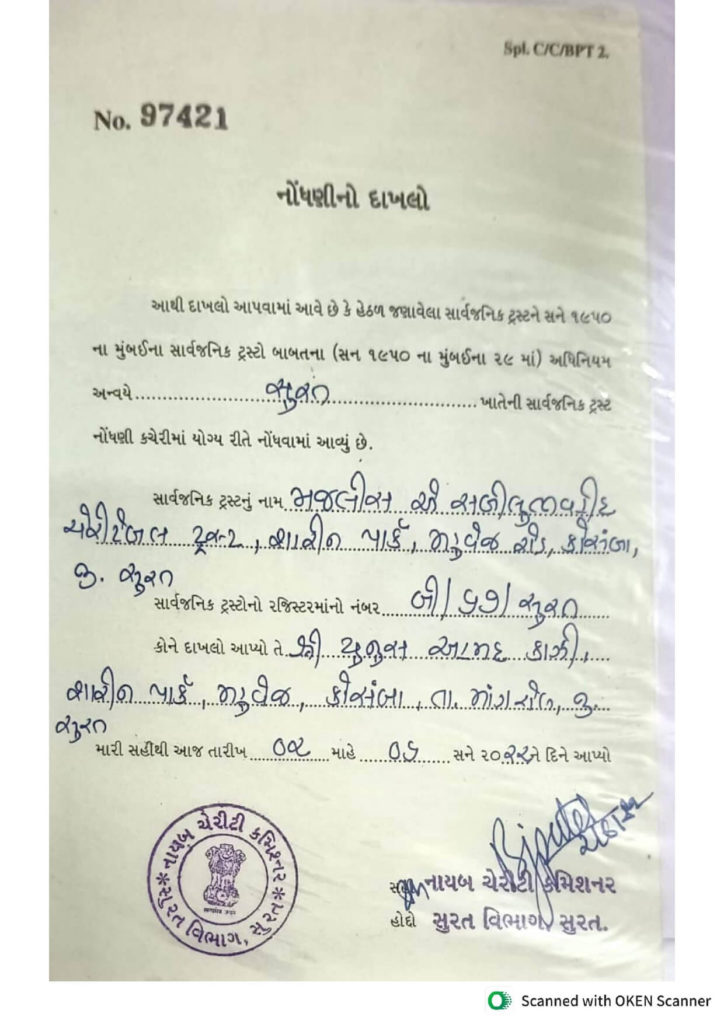 Spl. C/C/BPT 2.
No. 97421
નોંધણીનો દાખલો
આથી દાખલો આપવામાં આવે છે કે હેઠળ જણાવેલા સાર્વજનિક ટ્રસ્ટને સને ૧૯૫૦
ના મુંબઈના સાર્વજનિક ટ્રસ્ટો બાબતના (સન ૧૯૫૦ ના મુંબઈના ૨૯ માં) અધિનિયમ
અન્વયે સુરત ખાતેની સાર્વજનિક ટ્રસ્ટ
નોંધણી કચેરીમાં યોગ્ય રીતે નોંધવામાં આવ્યું છે.
સાર્વજનિક ટ્રસ્ટનું નામ મજલીસ એ
ચેરીટેબલ ટ્રસ્ટ, શાહીન પાર્ક, મહુવેજ રોડ, કોસંબા,
જી. સુરત
સાર્વજનિક ટ્રસ્ટોનો રજિસ્ટરમાંનો નંબર બી/ /સુરત
કોને દાખલો આપ્યો તે શ્રી યુનુસ અહમદ કાઝી,
શાહીન પાર્ક, મહુવેજ, કોસંબા, તા. માંગરોળ, જી.
સુરત
મારી સહીથી આજ તારીખ ૦૨ માહે ૦૬ સને ૨૦૨૨ને દિને આપ્યો
નાયબ ચેરીટી કમિશ્નર
સુરત વિભાગ, સુરત
સહી નાયબ ચેરીટી કમિશનર
હોદ્દો સુરત વિભાગ, સુરત.
Scanned with OKEN Scanner